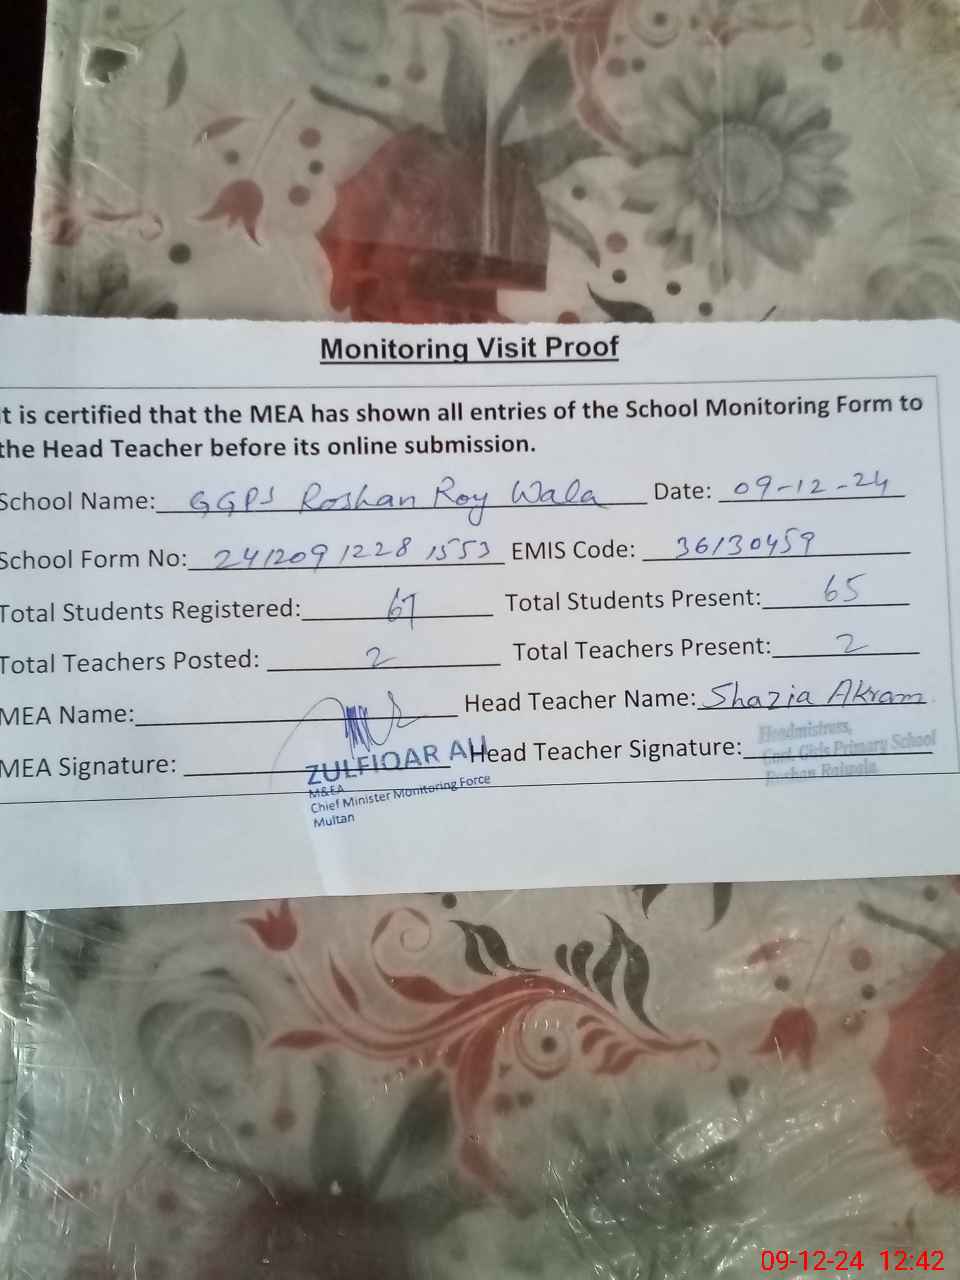 Monitoring Visit Proof
t is certified that the MEA has shown all entries of the School Monitoring Form to
the Head Teacher before its online submission.
School Name: GGPS Roshan Roy Wala Date: 09-12-24
School Form No: 241209 1228 1553 EMIS Code: 36130459
Total Students Registered: 67 Total Students Present: 65
Total Teachers Posted: 2 Total Teachers Present: 2
MEA Name: Head Teacher Name: Shazia Akram
MEA Signature: Head Teacher Signature:
ZULFIQAR ALI
M&EA
Chief Minister Monitoring Force
Multan
Headmistress,
Govt. Girls Primary School
Roshan
09-12-24 12:42